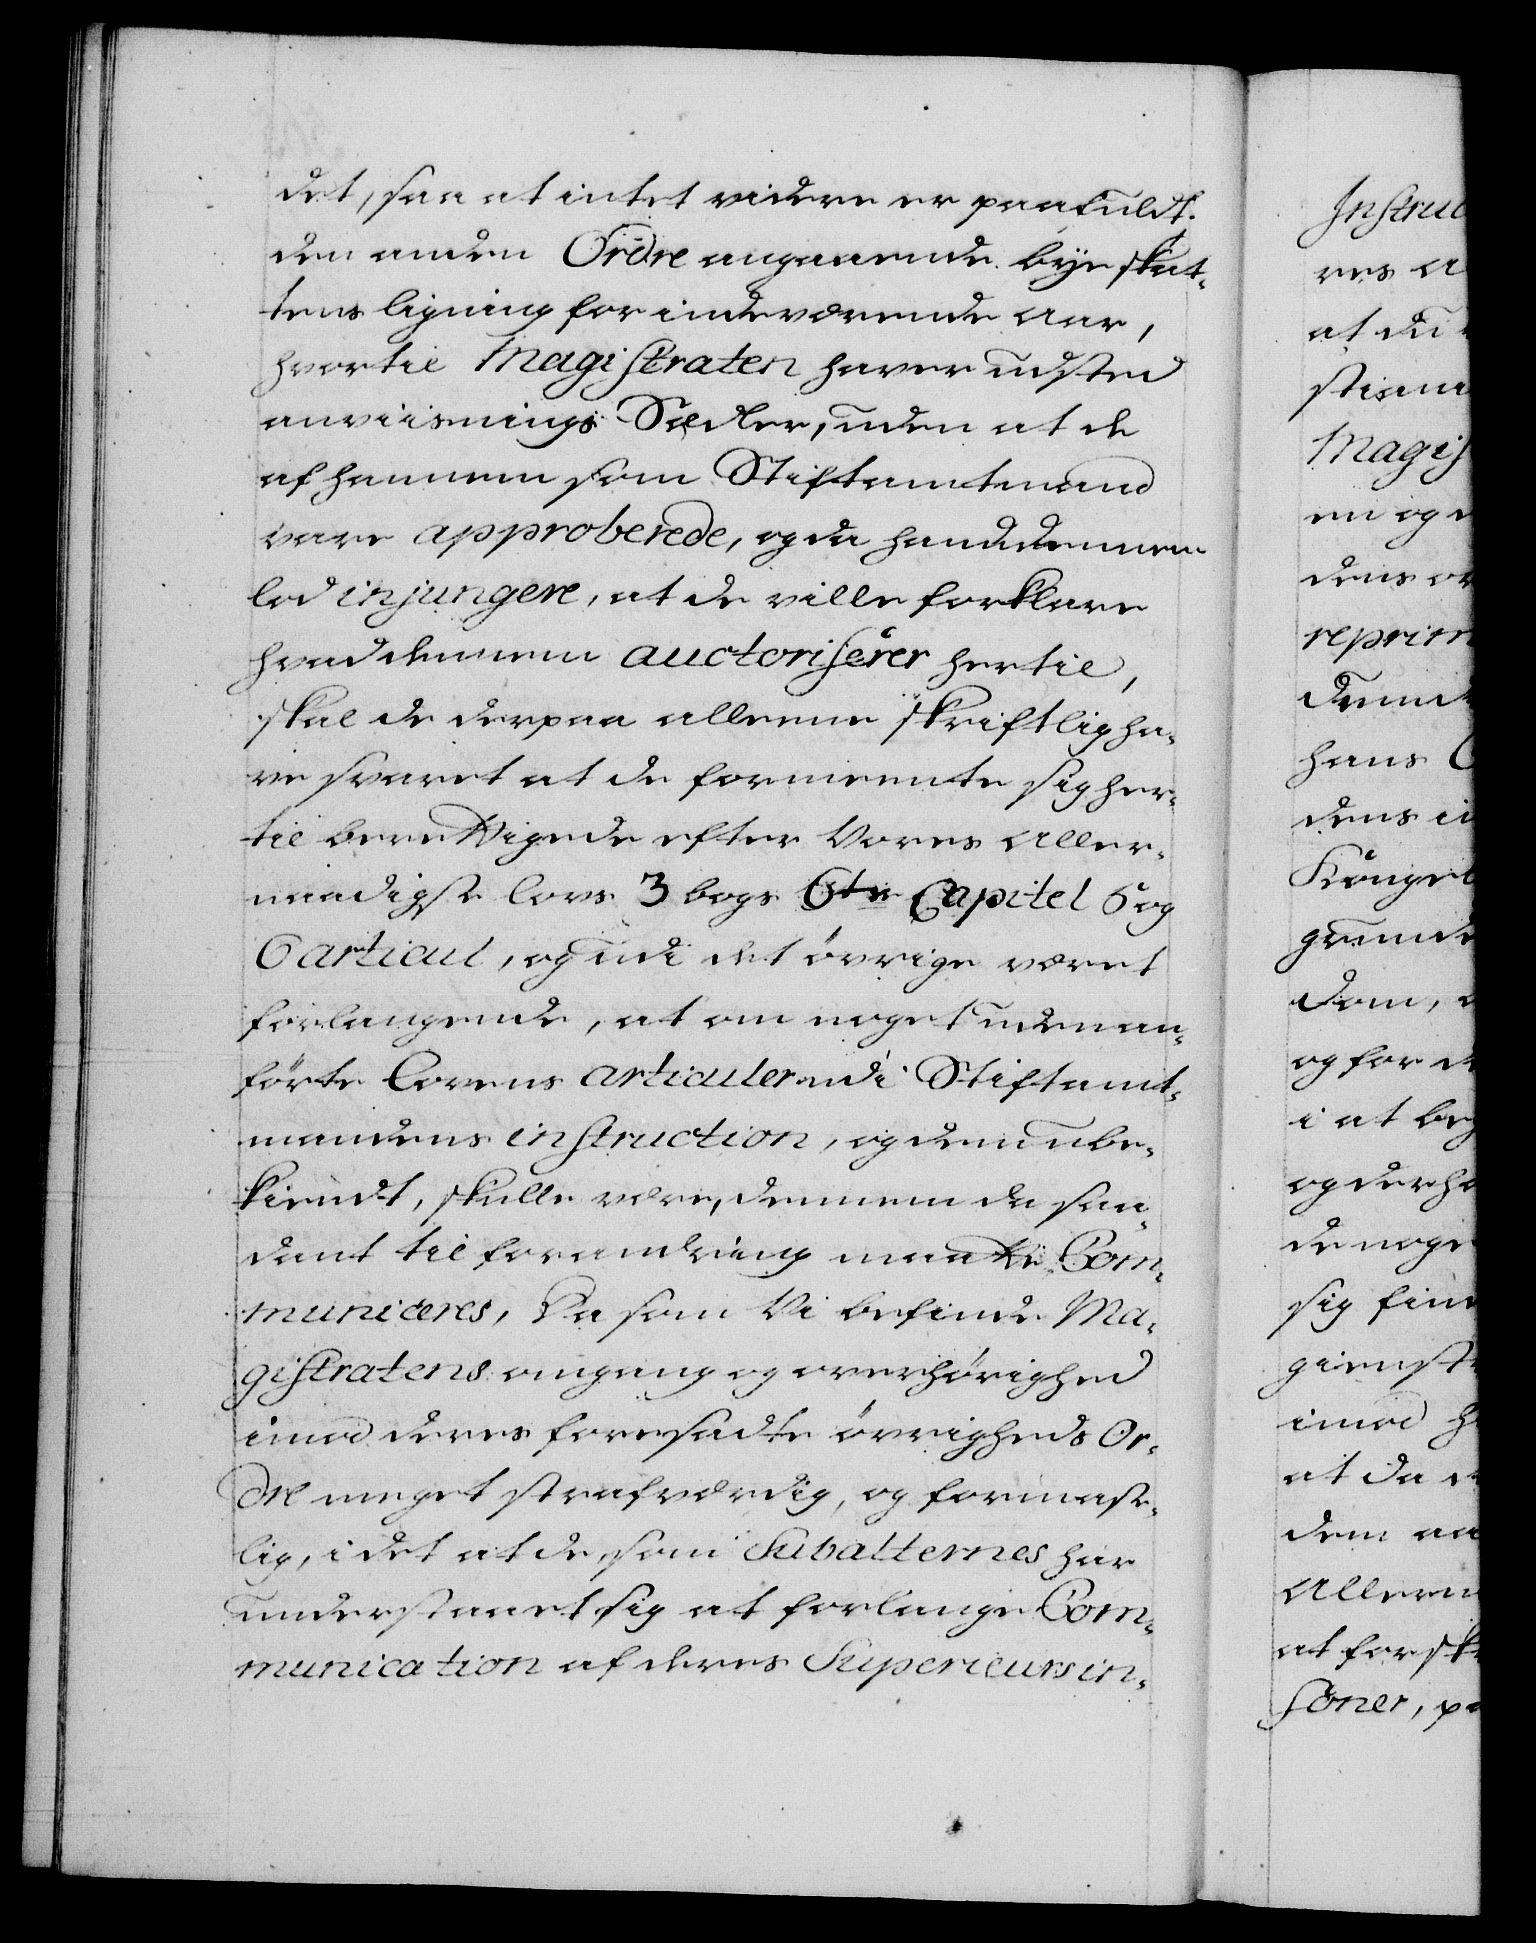 det, saa at intet videre er paafuldt.
den anden Ordre angaaende bÿe skat¬
tens ligning for indeværende aar,
hvortil Magistraten haver udsted
anviisnings Sedler, uden at de
af hannem som Stiftamtmand
vare approberede, og da hand dennem
lod injungere, at de ville forklare
hvad dennem auctoriserer hertil,
skal de derpaa alleene skriftlig ha¬
ve svaret at de formeente sig her¬
til berettigede efter Vores aller¬
naadigste lovs 3 bogs 6te Capitel 5 og
6 articul, og udi det øvrige været
forlangende, at om noget uden an¬
førte Lovens articuler udi Stiftamt¬
mandens instruction, og dem ube¬
kiendt, skulle være, dennem da saa¬
dant til forandring maatte Com¬
municeres, Da som Vi befinde Ma¬
gistratens omgang og overhørighed
imod deres foresadte øvrigheds Or¬
dre meget strafværdig, og formaste¬
lig, i det at de, som Subalternes har
understaaet sig at forlange Com¬
munication af deres Superieurs in¬
Instruc
res a
at du
Magis
en og
dens or
reprim
hans
dens
Konge
grunde
dom,
og for de
i at beg
og derho
de noge
sig finde
gienst
imod
at da
dem
allern
at forsk
soner, p